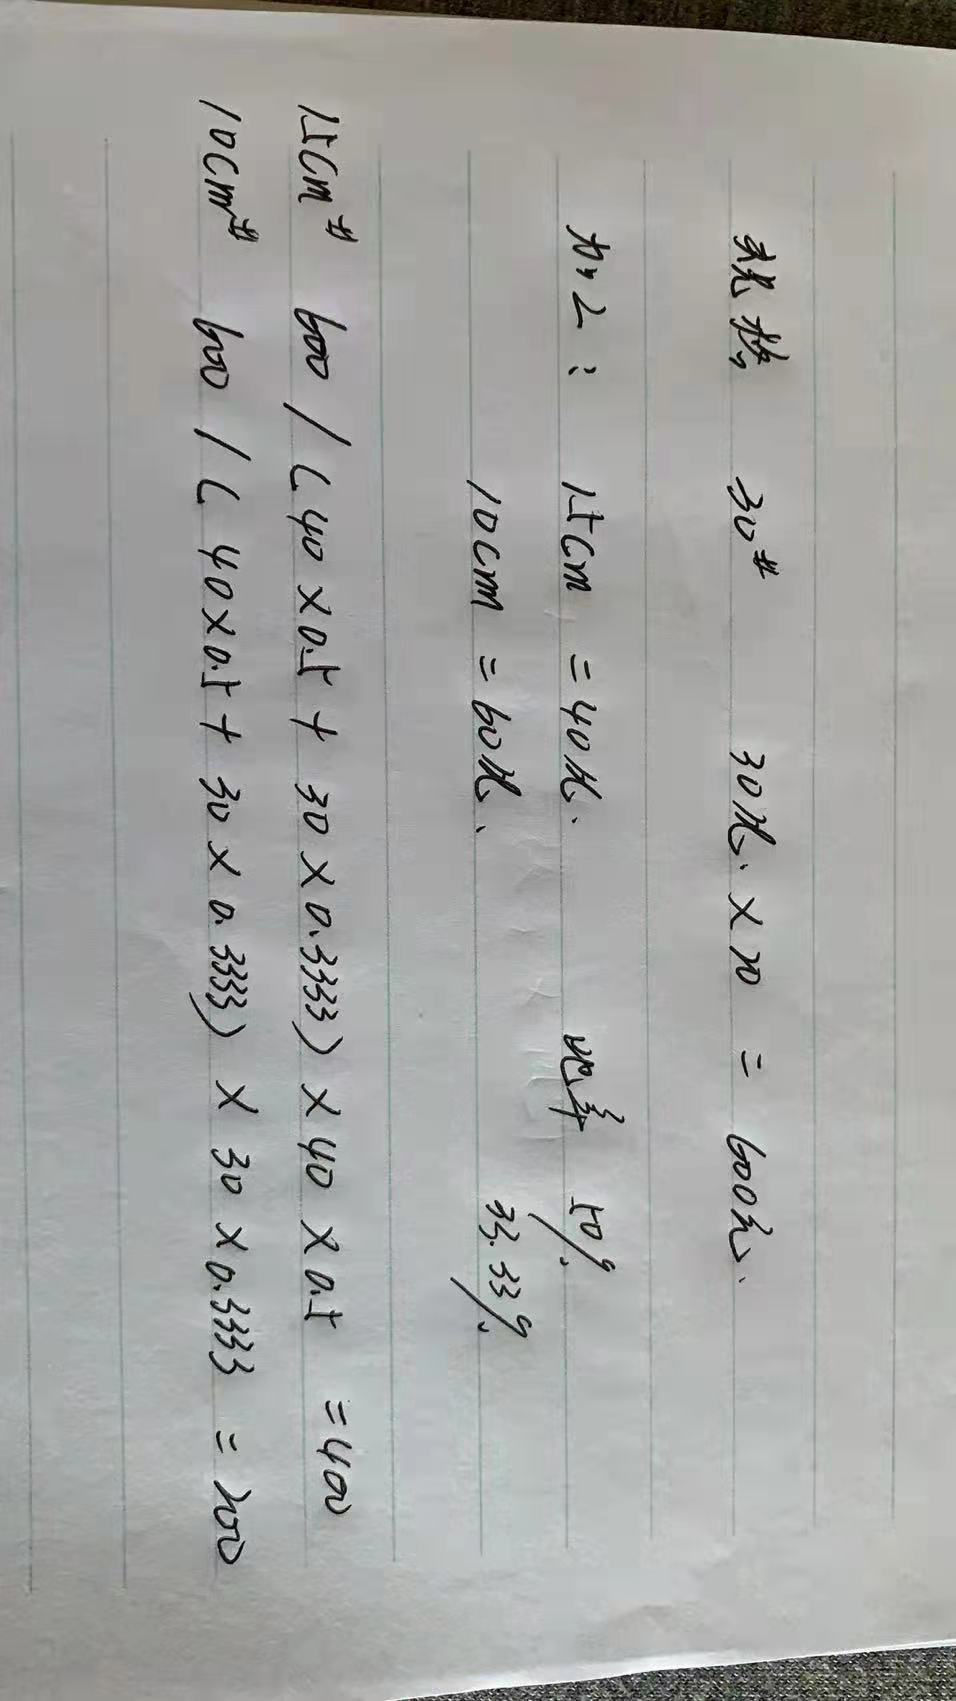 规格 30# 30比.×20 = 600元.
加工: 15cm =40比. 地率 50%
10cm =60比. 33.33%
15cm# 600/(40×0.5+30×0.3333)×40×0.5 =400
10cm# 600/(40×0.5+30×0.3333)×30×0.3333 =200